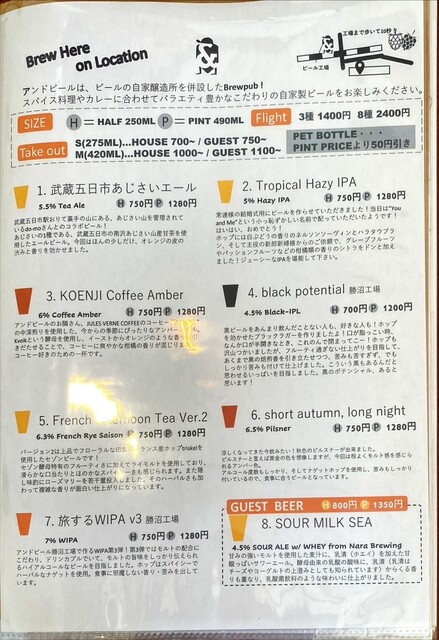 Brew Here
on Location
工場まで歩いて10秒
ビール工場
アンドビールは、ビールの自家醸造所を併設したBrewpub！
スパイス料理やカレーに合わせてバラエティ豊かなこだわりの自家製ビールをお楽しみください。
SIZE H = HALF 250ML P = PINT 490ML Flight 3種 1400円 8種 2400円
Take out S(275ML)...HOUSE 700~ / GUEST 750~
M(420ML)...HOUSE 1000~ / GUEST 1100~
PET BOTTLE・・・
PINT PRICEより50円引き
1. 武蔵五日市あじさいエール
5.5% Tea Ale H 750円 P 1280円
武蔵五日市駅おりて裏手の山にある、あじさい山を管理されて
いるdo-moさんとのコラボビール！
あじさいの1種である、武蔵五日市の南沢あじさい山産甘茶を使
用したエールビール。今回はほんの少しだけ、オレンジの皮の
渋みと香りを効かせました。
2. Tropical Hazy IPA
5% Hazy IPA H 750円 P 1280円
常連様の結婚式用にビールを作らせていただきました！当日は"You
and Me"という小っ恥ずかしい名前で配っていただいたようです！
はいはい、おめでとう！
ホップには白ぶどうの香りのネルソンソーヴィンとハラタウブラ
ン、そして主役の新郎新婦様からのご依頼で、グレープフルーツ
やパッションフルーツなどの柑橘類の香りのシトラをドンと加え
ました！ジューシーなIPAを堪能して下さい。
3. KOENJI Coffee Amber
6% Coffee Amber H 750円 P 1280円
アンドビールのお隣さん、JULES VERNE COFFEEのコーヒー
の中深煎りを使用した、今からの季節にぴったりなアンバー
Kveikという酵母を使用し、イーストからオレンジのような香り
きだたせることで、コーヒーに爽やかな柑橘の香りが混じり
コーヒー好きのための一杯です。
4. black potential 勝沼工場
4.5% Black-IPL H 700円 P 1200円
黒ビールをあんまり飲んだことない人も、好きな人も！ホップ
を効かせたブラックラガーを作りましたよ！口が脂っこい時、
なんか口が手開きなとき、これの
5. French Afternoon Tea Ver.2
6.3% French Rye Saison H 750円 P 1280円
バージョン2は上品でフローラルな
ランス産ホップtriskelを
使用したセゾンビールです！
セゾン酵母特有のフルーティさに加えてライモルトを使用しており、
滑らかな口当たりとほのかなスパイシーさも感じられます。また隠
し味的にローズマリーを若干量投入しました。そのハーバルさも加
わって複雑な香りが面白い仕上がりになっています。
6. short autumn, long night
6.5% Pilsner H 750円 P 1280円
涼しくなってきた今飲みたい！秋のピルスナーが出来ました。
ピルスナーと言えば黄金の色を想像しますが、今回は程よくモルト感を感じ
られるアンバー色。
アルコール度数もしっかり、そしてナゲットホップを使用し、苦みもしっかり
付いているので、食事に合うビールとなっています。
7. 旅するWIPA v3 勝沼工場
7% WIPA H 750円 P 1280円
アンドビール勝沼工場で作るWIPA第3弾！第3弾ではモルトの配合に
こだわり、ドリンカブルでいて、モルトの旨味をしっかり伝えられ
るハイアルコールなビールを目指しました。ホップはスパイシーで
ハーバルなナゲットを使用。食事に邪魔しない香り・苦みを出して
います。
GUEST BEER H 800円 P 1350円
8. SOUR MILK SEA
4.5% SOUR ALE w/ WHEY from Nara Brewing
甘みの強いモルトを使用した麦汁に、乳清（ホエイ）を加えた甘
酸っぱいサワーエール。酵母由来の乳酸の酸味に、乳清（乳清は
チーズやヨーグルトの上澄みとしても知られています）からくる香
りも重なり、乳酸菌飲料のような味わいに仕上がりました。